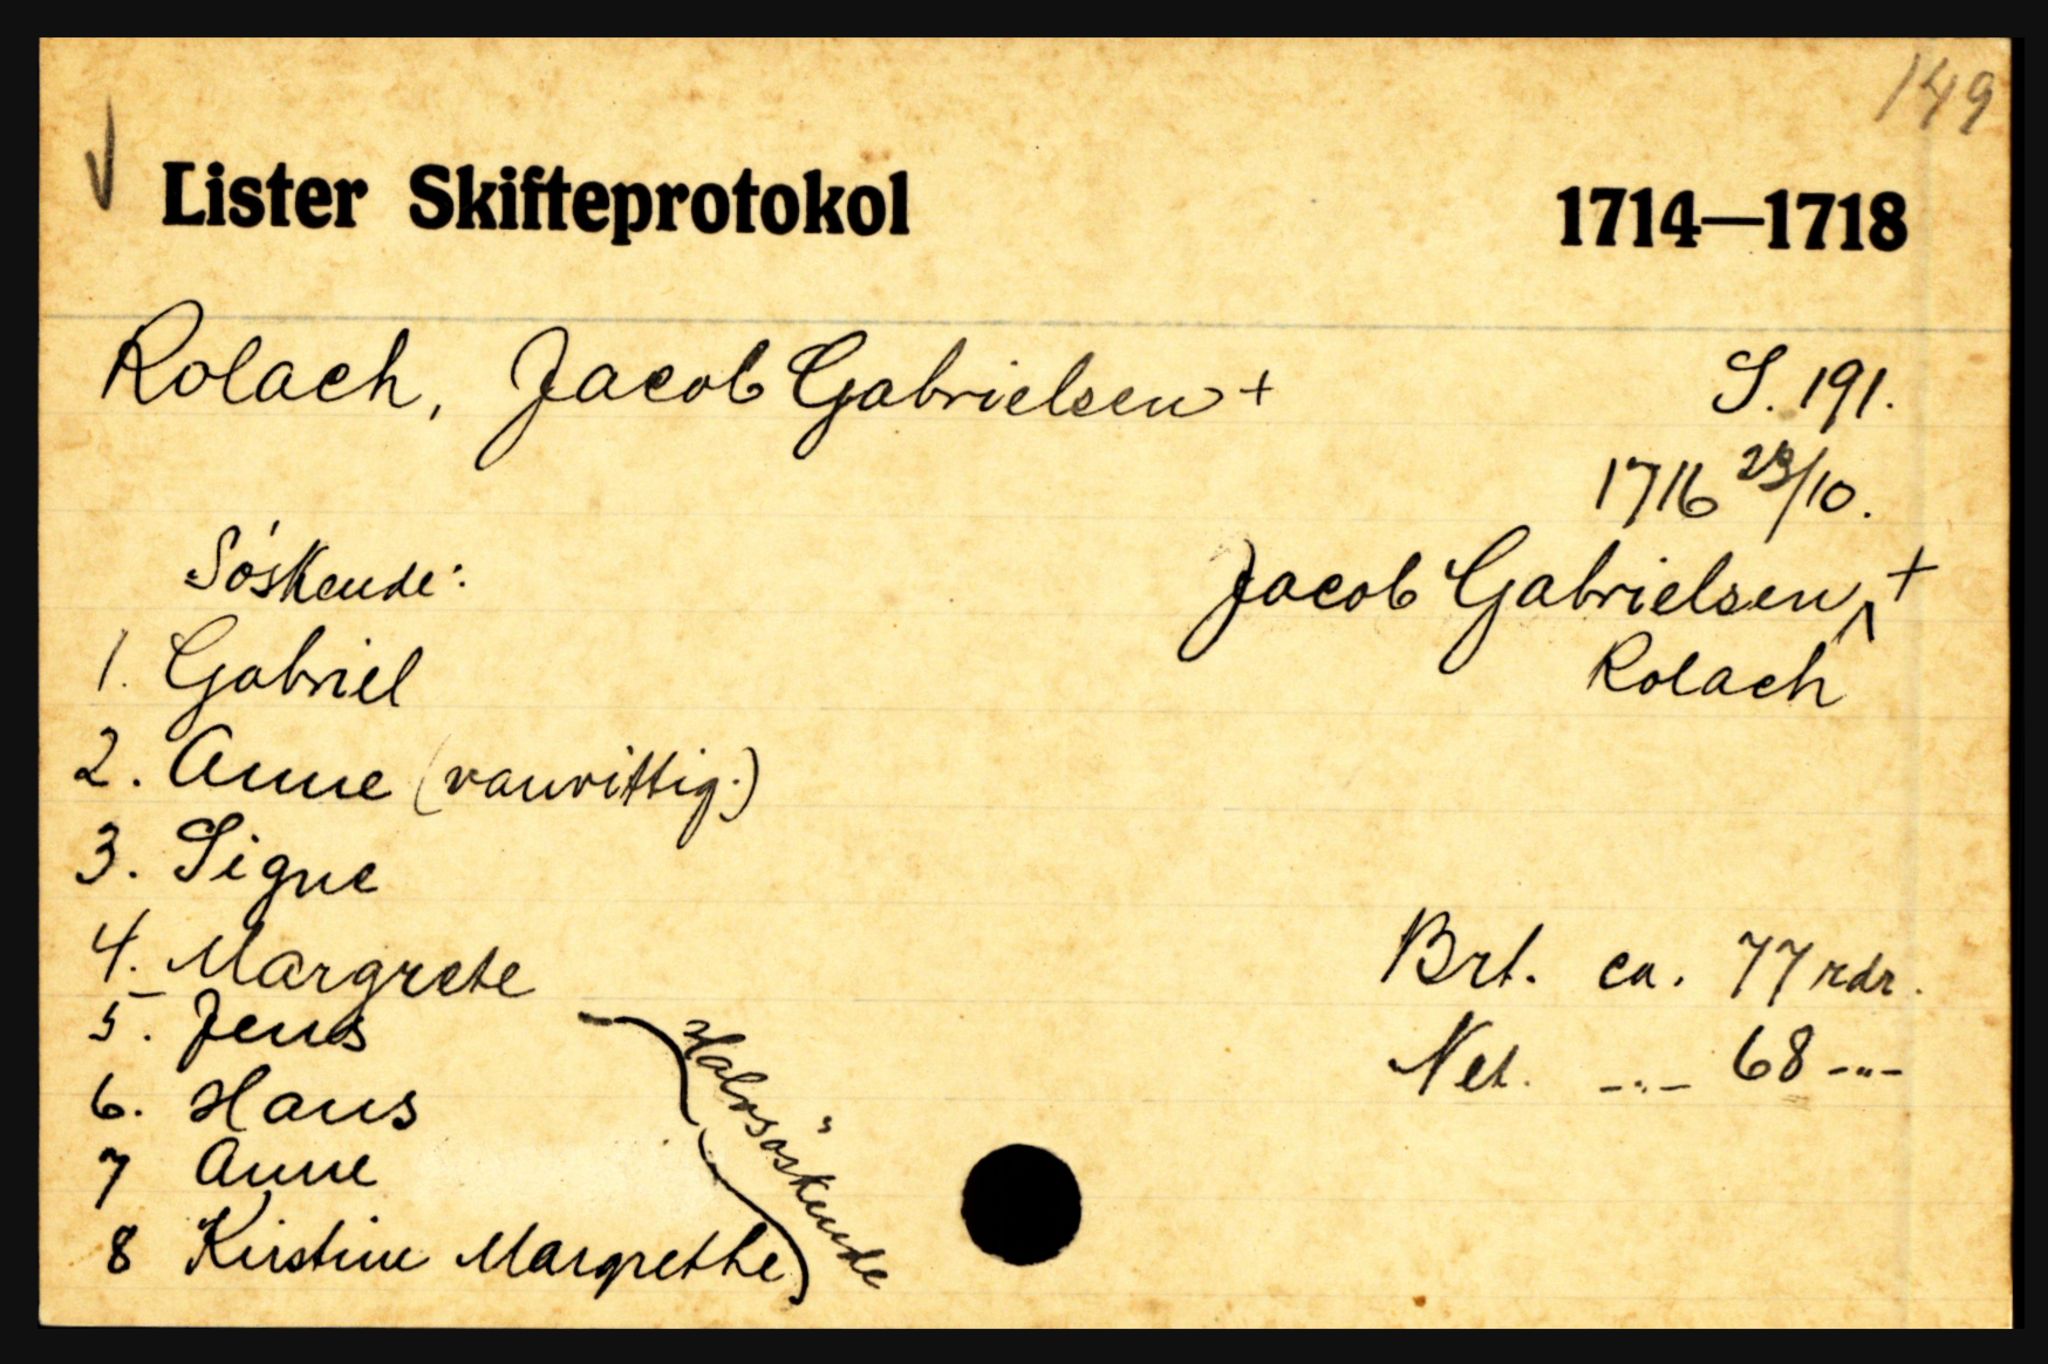 149
Lister Skifteprotokol 1714—1718
Rolach, Jacob Gabrielsen + S. 191.
1716 23/10.
Søskende: Jacob Gabrielsen +
Rolach
1. Gabriel
2. Anne (vanvittig.)
3. Signe
4. Margrete Brt. ca. 77 rdr.
5. Jens
Net. -"- 68 -"-
6. Hans
7 Anne
8 Kirstine Margrethe
Halvsøskende